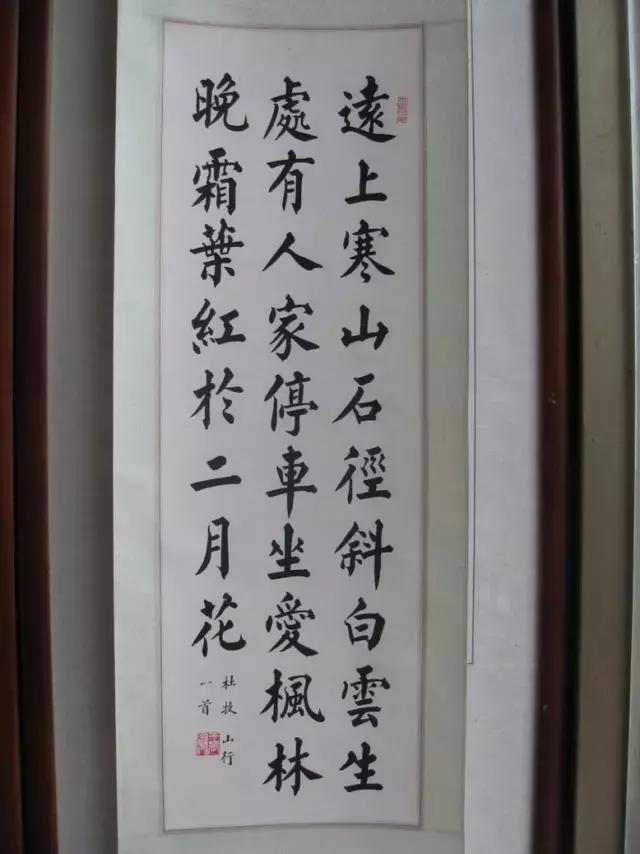 遠上寒山石徑斜白雲生
處有人家停車坐愛楓林
晚霜葉紅於二月花
杜牧山行
一首